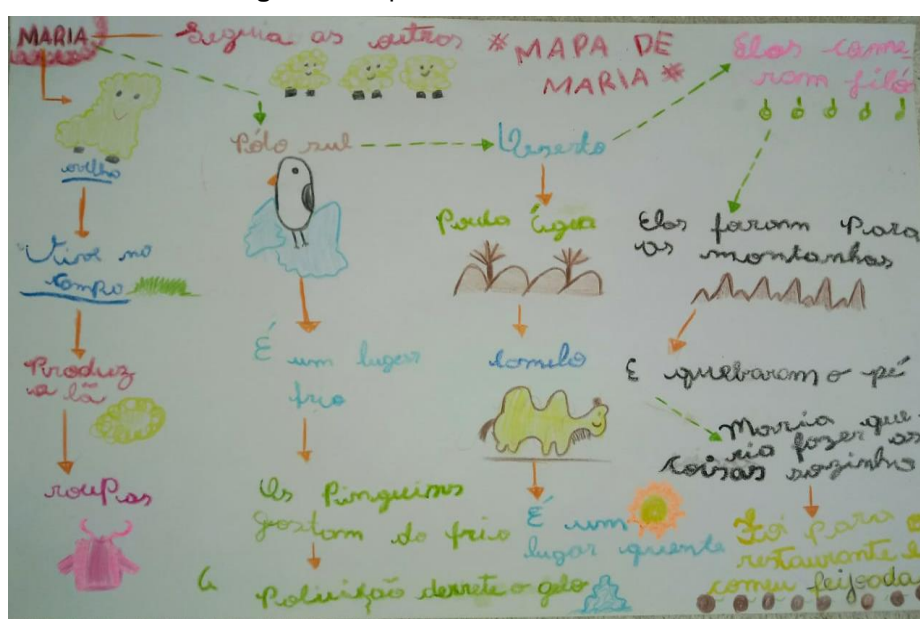 MARIA
Seguia as outros
* MAPA DE
MARIA *
Elas come
ram filó
ovelha
Vive no
campo
Produz
a lã
roupas
Pólo sul
É um lugar
frio
Os Pinguins
gostam do frio
Poluição derrete o gelo
Deserto
Pouca Água
Camelo
É um
lugar quente
Elas foram Para
as montanhas
E quebraram o pé
Maria que
ria fazer as
coisas sozinha
Foi para o
restaurante e
comeu feijoada